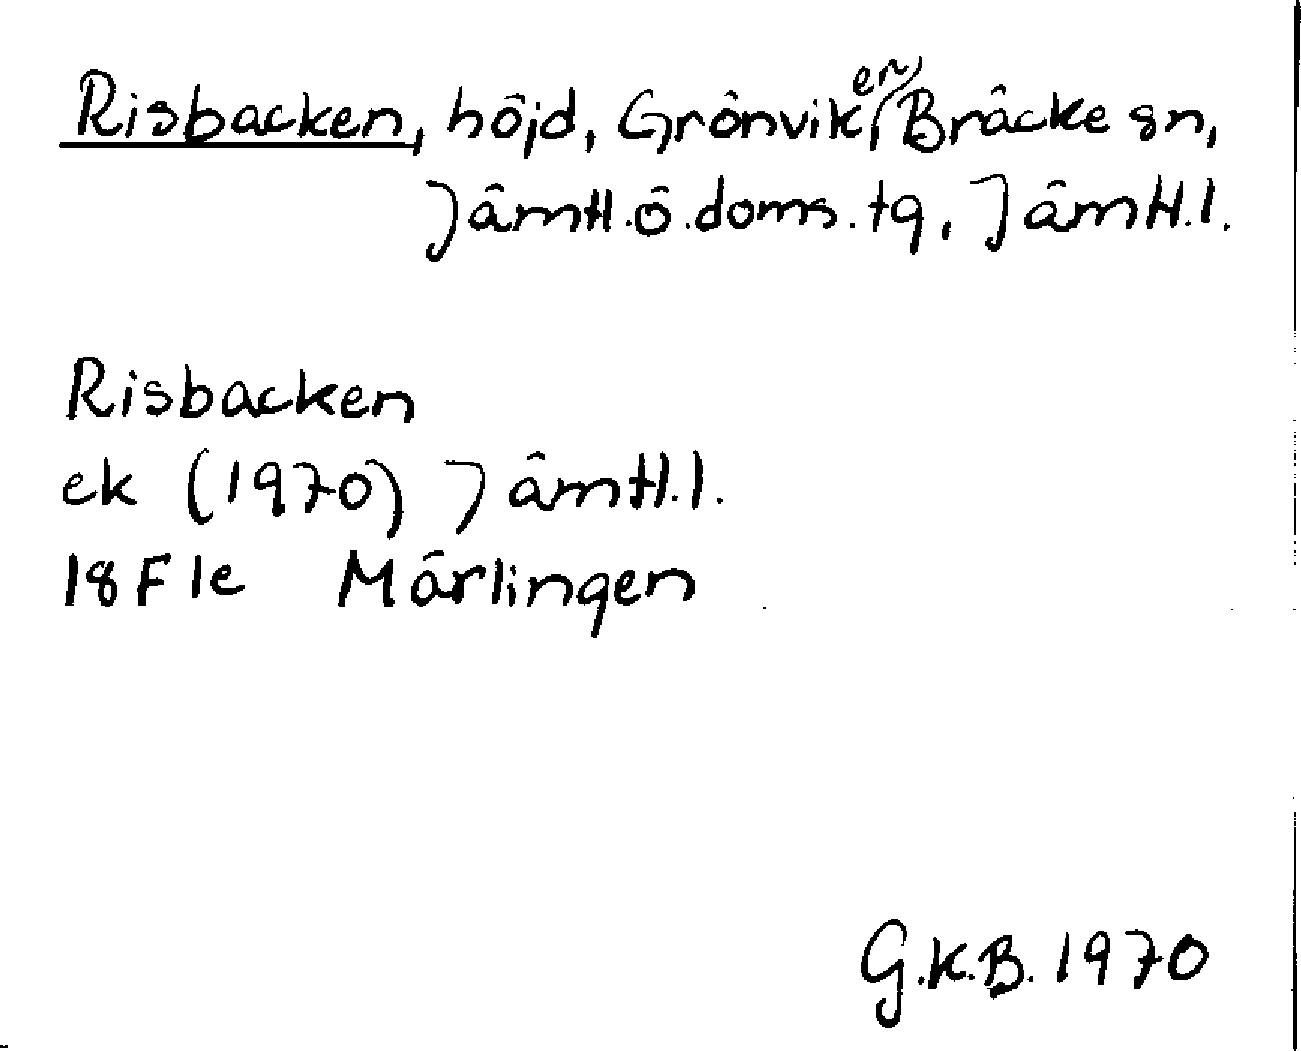 Risbacken, höjd, Grönviken, Bräcke sn,
Jämtl.ö.doms.tg, Jämtl.l.
Risbacken
ek (1970) Jämtl.l.
18F1e Märlingen
G.K.B. 1970